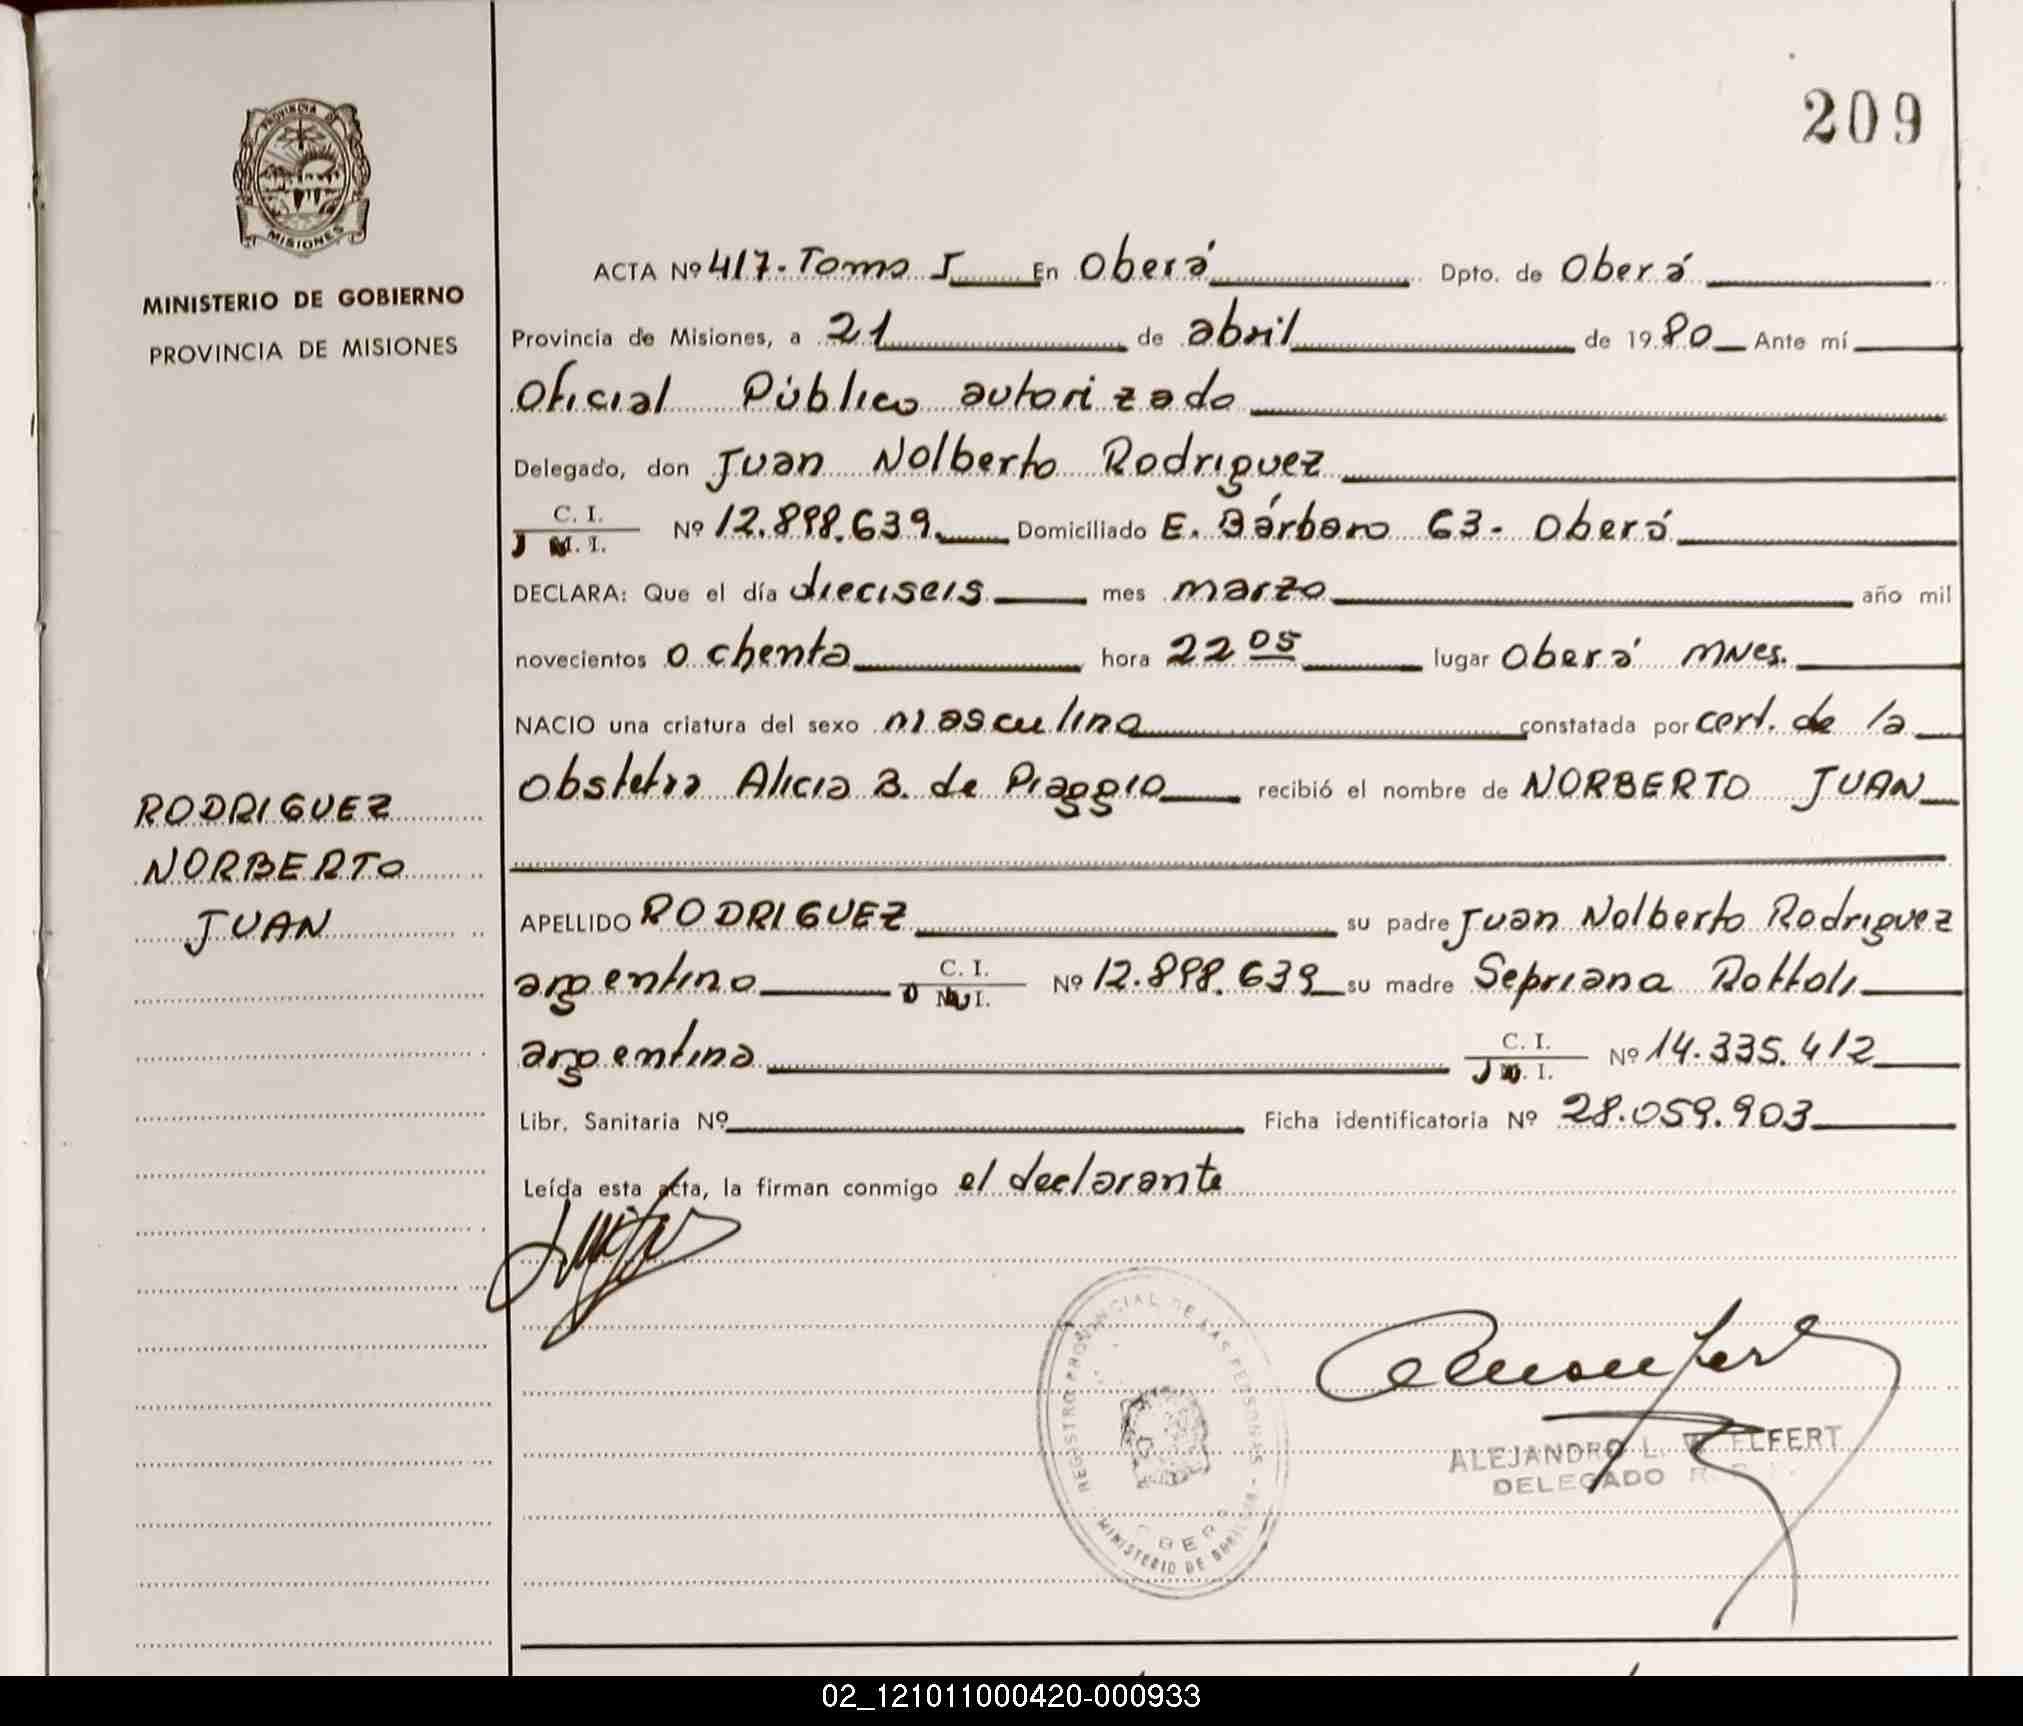 209
PROVINCIA DE
MISIONES
MINISTERIO DE GOBIERNO
PROVINCIA DE MISIONES
RODRIGUEZ
NORBERTO
JUAN
ACTA Nº 417- Tomo I En Oberá Dpto. de Oberá
Provincia de Misiones, a 21 de abril de 1980 Ante mí
Oficial Público autorizado
Delegado, don Juan Nolberto Rodriguez
C. I. Nº 12.898.639. Domiciliado E. Bárbaro 63- Oberá
M. I.
DECLARA: Que el día dieciseis mes marzo año mil
novecientos ochenta hora 22 05 lugar Oberá Mnes.
NACIO una criatura del sexo masculino constatada por cert. de la
Obstetra Alicia B. de Piaggio recibió el nombre de NORBERTO JUAN
APELLIDO RODRIGUEZ su padre Juan Nolberto Rodriguez
argentino C. I. Nº 12.898.639 su madre Sepriana Rottoli
argentina C. I. Nº 14.335.412
Libr. Sanitaria Nº Ficha identificatoria Nº 28.059.903
Leída esta acta, la firman conmigo el declarante
REGISTRO PROVINCIAL DE LAS PERSONAS
MINISTERIO DE
ALEJANDRO L.
DELEGADO
02_121011000420-000933